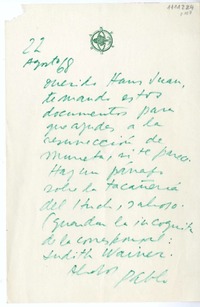 22
Agosto 68
Querido Hans Juan,
te mando estos
documentos para
que ayudes a la
resurrección de
Murieta, si te parece.
Hay un párrafo
sobre la tacañería
del Indio, sabroso.
(guardar la incógnita
de la corresponsal:
Judith Wainer.
Abrazos
Pablo